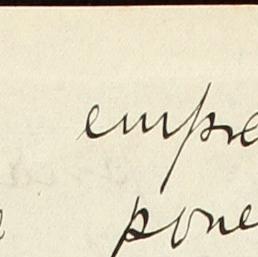 empre
pone